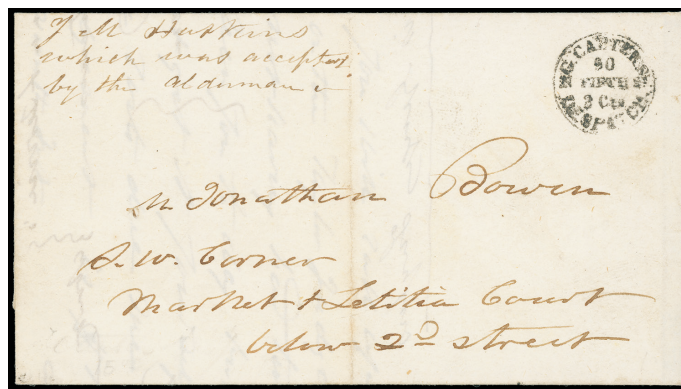 J M Haskins
which was accepted
by the alderman
G. CARTER'S
90
FIFTH S
2 Cts
DESPATCH
Mr Jonathan Bowen
S. W. Corner
Market & Letitia Court
below 2d street